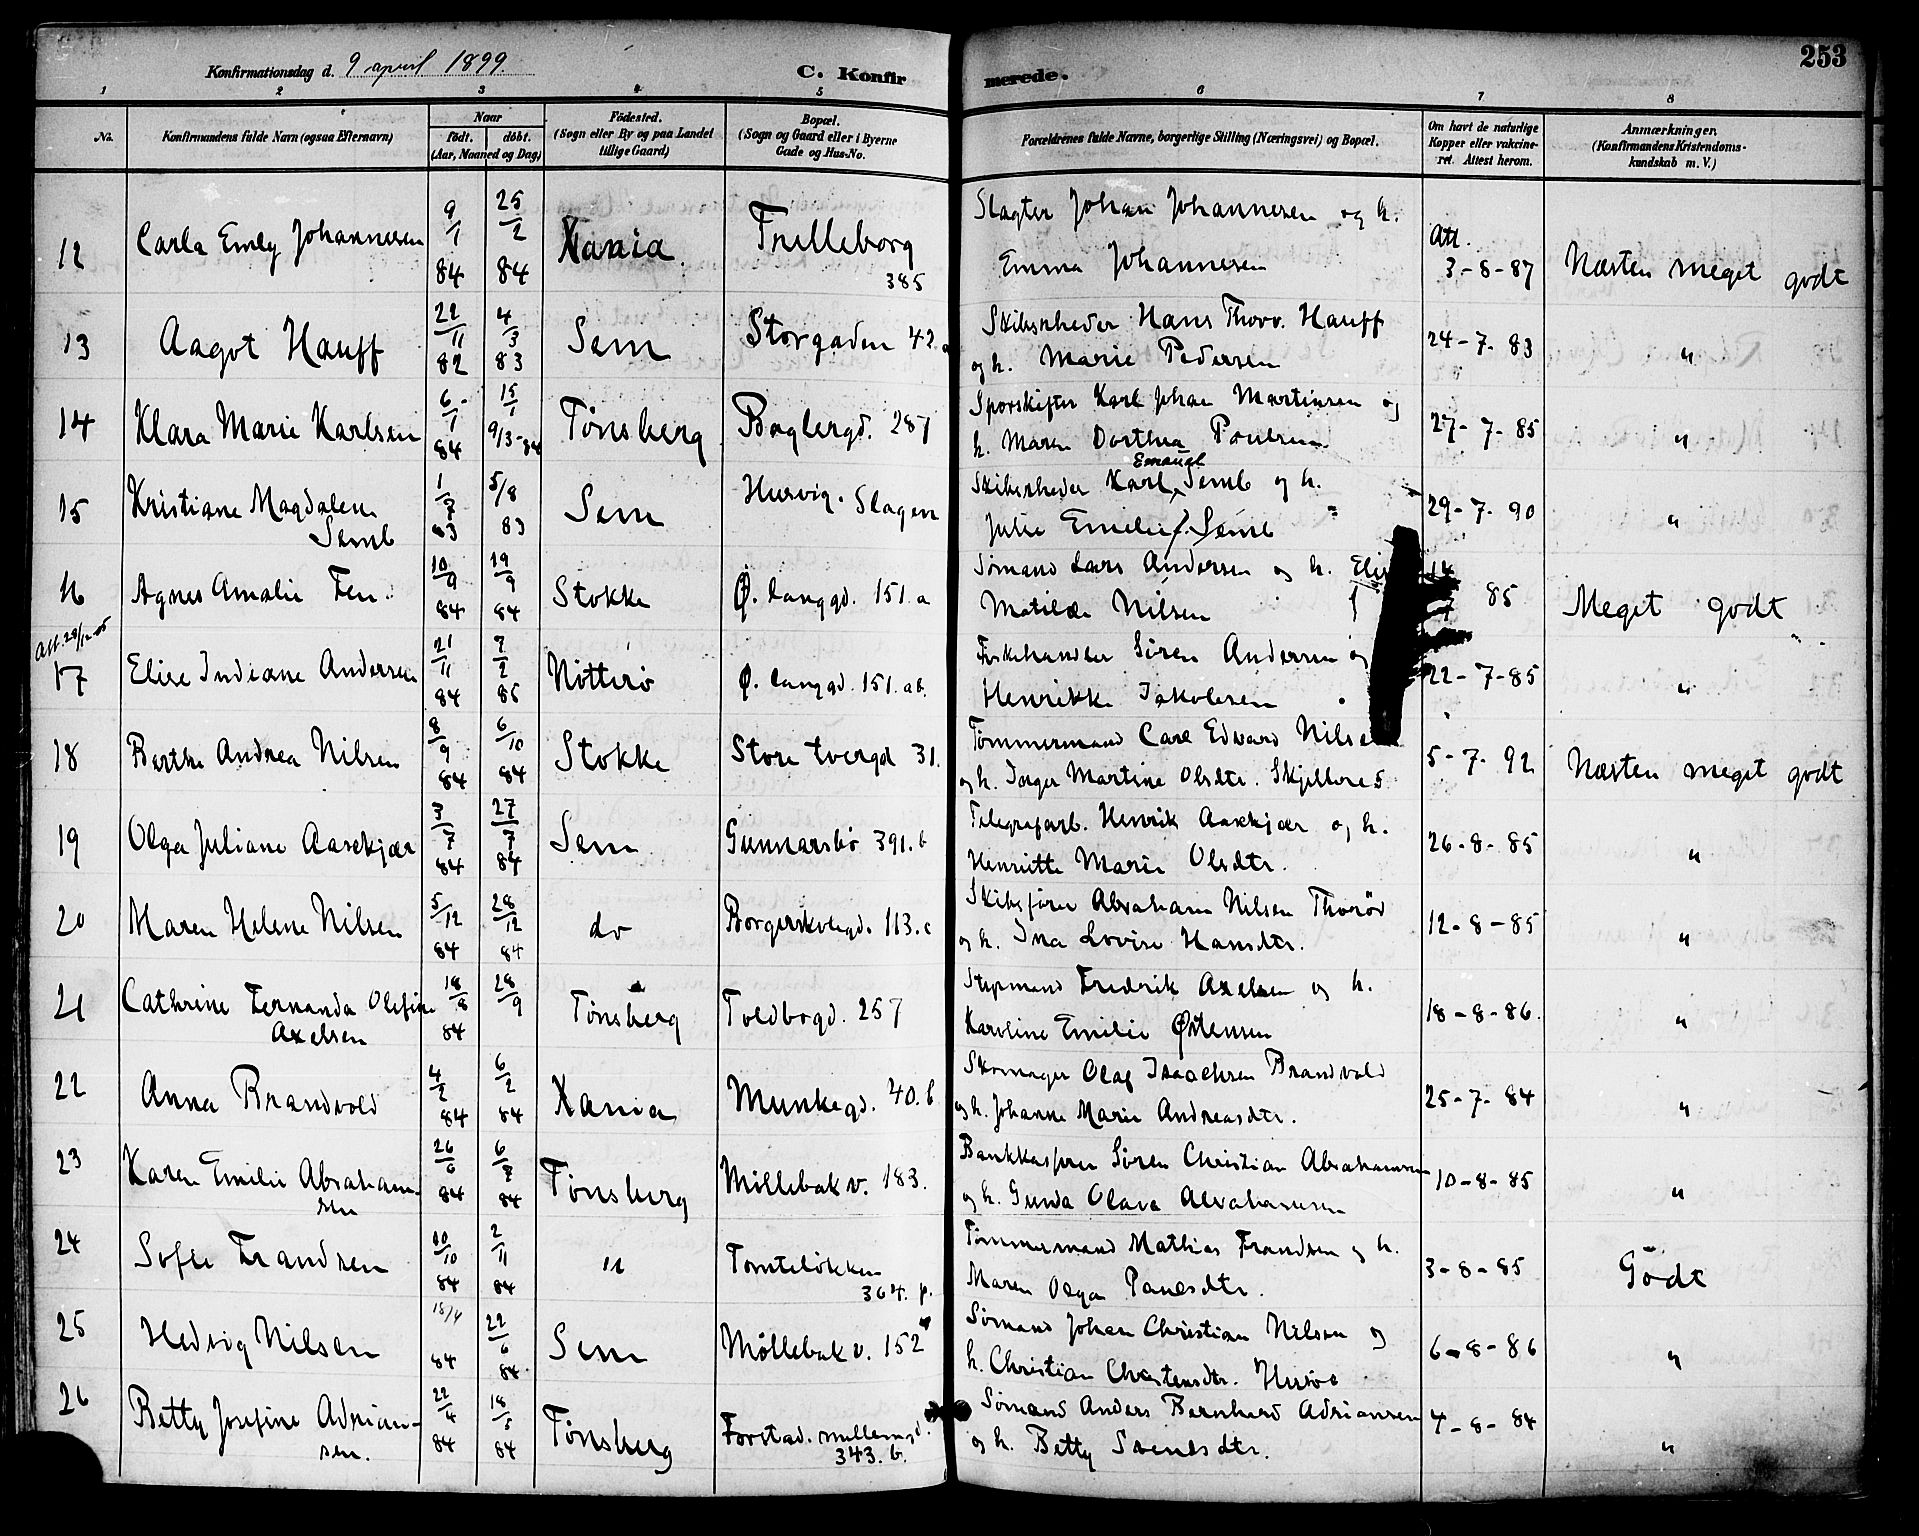 253
Konfirmationsdag d. 9 april 1899.
C. Konfirmerede.
1 2 3 4 5 6 7 8
No.
Konfirmandens fulde Navn (ogsaa Efternavn)
Naar
født. døbt.
(Aar, Maaned og Dag)
Fødested.
(Sogn eller By og paa Landet
tillige Gaard)
Bopæl.
(Sogn og Gaard eller i Byerne
Gade og Hus-No.
Forældrenes fulde Navne, borgerlige Stilling (Næringsvei) og Bopæl.
Om havt de naturlige
Kopper eller vaccine-
ret. Attest herom.
Anmærkninger.
(Konfirmandens Kristendoms-
kundskab m. V.)
12 Carla Emely Johannesen 9/1 84 25/2 84 Xania. Trelleborg 385
Slagter Johan Johannesen og h.
Emma Johannesen
Att. 3-8-87 Næsten meget godt
13 Aagot Hauff 22/11 82 4/3 83 Sem Storgaden 42.a
Skibsrheder Hans Thorv. Hauff
og h. Marie Pedersen
24-7-83 "
14 Klara Marie Karlsen 6/1 84 15/1 9/3-84 Tønsberg Bagbergd. 287
Sporskifter Karl Johan Martinsen og
h. Maren Dorthea Poulsen
27-7-85 "
15 Kristiane Magdalene
Semb
1/7 83 5/8 83 Sem Husvig. Slagen
Skibsrheder Karl Emauel Semb og h.
Julie Emilie Semb
29-7-90 "
16 Agnes Amalie Fen. 10/9 84 19/9 84 Stokke Ø. langgd. 151.a
Sømand Lars Andersen og h.
Matilde Nilsen
85 Meget godt
Att. 28/12-05
17 Elise Indiane Andersen 21/11 84 2/2 85 Nøtterø Ø. langgd. 151.ab.
Fiskehandler Søren Andersen og
Henrikke Jakobsen
22-7-85 "
18 Berthe Andrea Nilsen 8/9 84 6/10 84 Stokke Store tvergd 31.
Tømmermand Carl Edvard Nilsen
og h. Inger Martine Olsdtr. Skjelbre 5.
5-7-92 Næsten meget godt
19 Olga Juliane Aasekjær 3/7 84 27/7 84 Sem Gunnarsbø 391.b
Telegrafarb. Henrik Aasekjær og h.
Henriette Marie Olsdtr.
26-8-85 "
20 Maren Helene Nilsen 5/12 84 28/12 84 do Borgerskolegd. 113.c
Skibsfører Abraham Nilsen Thorød
og h. Ina Lovise Hansdtr.
12-8-85 "
21 Cathrine Fernanda Olefine
Axelsen
18/8 84 28/9 Tønsberg Toldbogd. 257
Stuemand Fredrik Axelsen og h.
Karoline Emilie Østensen
18-8-86. "
22 Anna Brandvold 4/2 84 6/2 84 Xania Munkegd. 40.b
Skomager Olaf Isachsen Brandvold
og h. Johanne Marie Andreasdtr.
25-7-84 "
23 Karen Emilie Abraham-
sen
26/6 84 6/7 84 Tønsberg Møllebak v. 183.
Bankkasserer Søren Christian Abrahamsen
og h. Gunda Olava Abrahamsen
10-8-85 "
24 Sofie Frandsen 10/10 84 2/11 84 " Tomteløkken
364. p.
Tømmermand Mathias Frandsen og h.
Maren Olga Paulsdtr.
3-8-85 Godt
25 Hedvig Nilsen 18/4 84 22/6 84 Sem Møllebak v. 152
Sømand Johan Christian Nilsen og
h. Christian Christensdtr. Husøe
6-8-86 "
26 Betty Josefine Adrian-
sen.
22/4 84 18/5 84 Tønsberg Forstad. mellemgd.
343.b.
Sømand Anders Bernhard Adriansen
og h. Betty Svendsdtr.
4-8-84 "